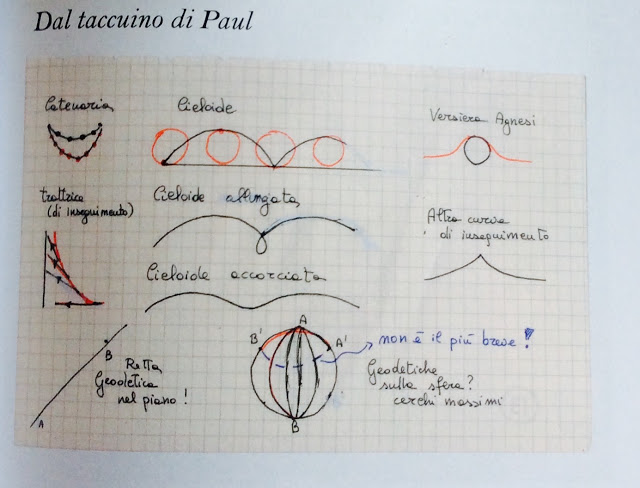 Dal taccuino di Paul
Catenaria
Cicloide
Versiera Agnesi
trattrice
(di inseguimento)
Cicloide allungata
Altra curva
di inseguimento
Cicloide accorciata
A
B'
A'
non è il più breve!
B
Retta
Geodetica
nel piano!
A
Geodetiche
sulla sfera?
cerchi massimi
B